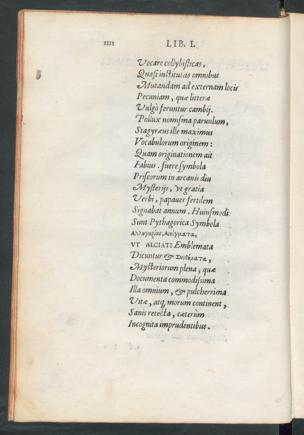 IIII LIB. I.
Vocare collybisticas,
Quasi institutas omnibus
Mutandam ad externam locis
Pecuniam, quæ litteræ
Vulgò feruntur cambij.
Pollux nomisma parvulum,
Stagyræus ille maximus
Vocabulorum originem:
Quam originationem ait
Fabius. fuere symbola
Priscorum in arcanis diu
Mysterijs, Vt gratia
Verbi, papauer fertilem
Signabat annum. Huiusmodi
Sunt Pythagorica Symbola
Ἀλληγορίαι, Αἰνίγματα,
VT ALCIATI Emblemata
Dicuntur &
Mysteriorum plena, quæ
Documenta commodissima
Illa omnium, & pulcherrima
Vitæ, atq; morum continent,
Sanis retecta, cæterùm
Incognita imprudentibus.